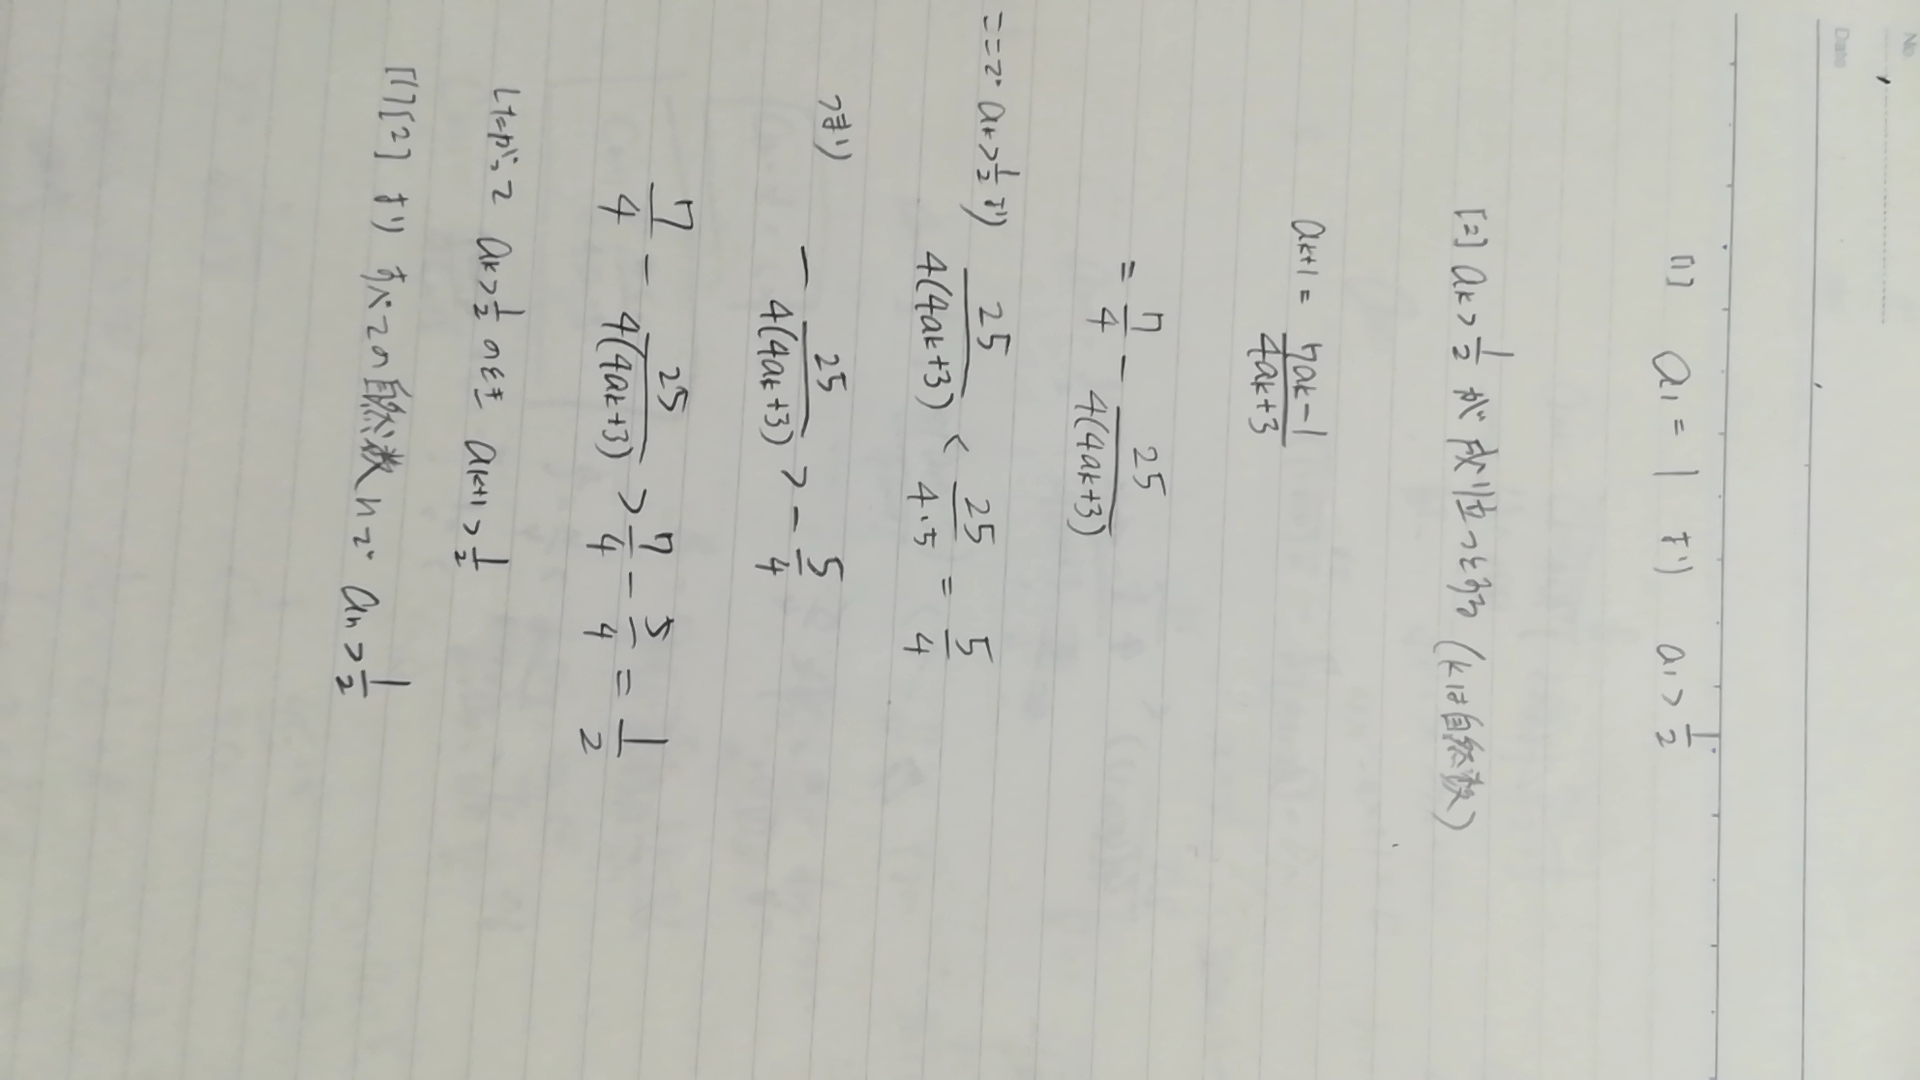 No.
Date
[1] a₁ = 1 より a₁ > 1/2
[2] aₖ > 1/2 が成り立つとする (kは自然数)
aₖ₊₁ = (7aₖ-1)/(4aₖ+3)
= 7/4 - 25/(4(4aₖ+3))
ここで、aₖ > 1/2 より 25/(4(4aₖ+3)) < 25/(4・5) = 5/4
つまり - 25/(4(4aₖ+3)) > - 5/4
7/4 - 25/(4(4aₖ+3)) > 7/4 - 5/4 = 1/2
したがって aₖ > 1/2 のとき aₖ₊₁ > 1/2
[1][2] より すべての自然数 n で aₙ > 1/2